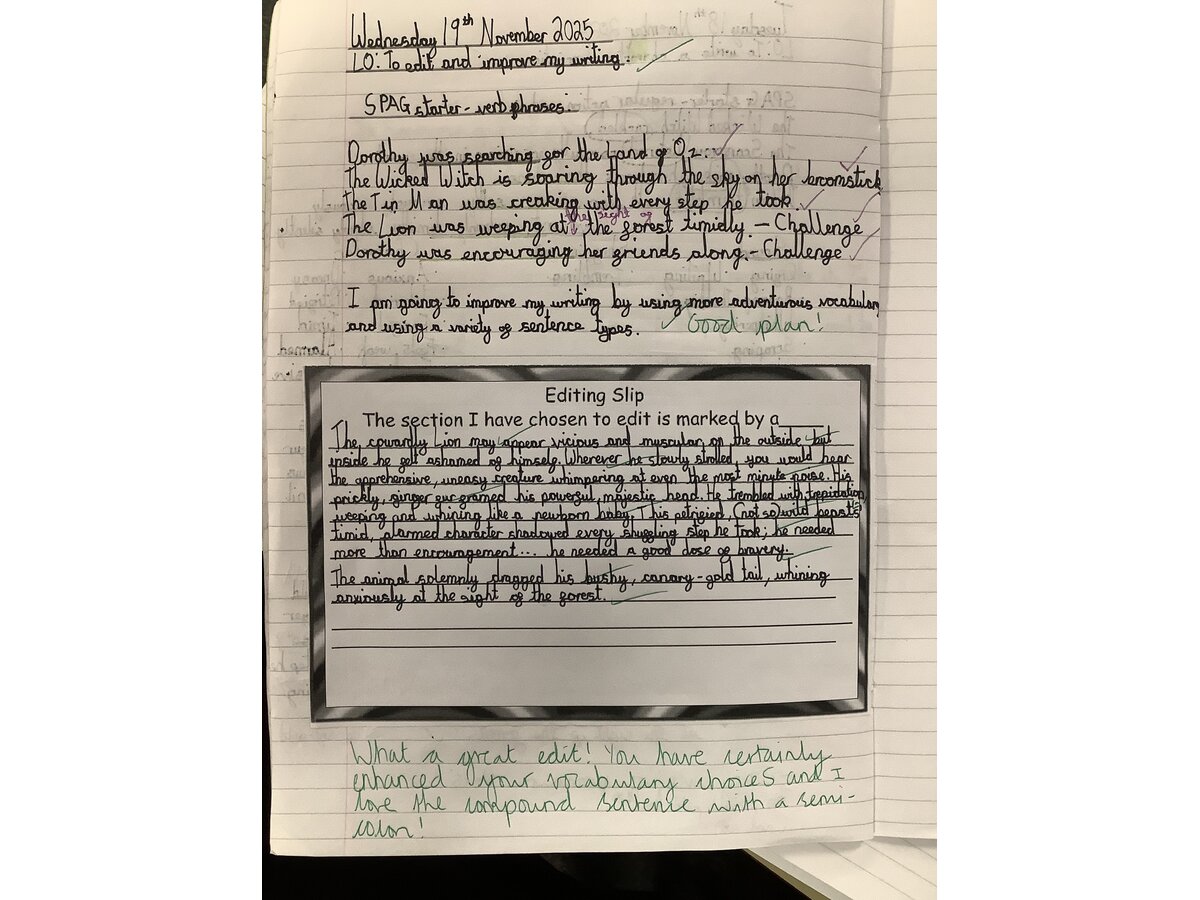 Wednesday 19th November 2025
LO: To edit and improve my writing.
SPAG starter - verb phrases.
Dorothy was searching for the Land of Oz.
The Wicked Witch is soaring through the sky on her broomstick
The Tin Man was creaking with every step he took.
the sight of
The Lion was weeping at the forest timidly. - Challenge
Dorothy was encouraging her friends along. - Challenge
I am going to improve my writing by using more adventurous vocabulary
and using a variety of sentence types.
Good plan!
Editing Slip
The section I have chosen to edit is marked by a
The cowardly Lion may appear vicious and muscular on the outside but
inside he felt ashamed of himself. Wherever he slowly strolled, you would hear
the apprehensive, uneasy creature whimpering at even the most minute noise. His
prickly, ginger fur framed his powerful, majestic head. He trembled with trepidation,
weeping and whining like a newborn baby. This petrified, (not so) wild beast's
timid, alarmed character shadowed every shuffling step he took; he needed
more than encouragement... he needed a good dose of bravery.
The animal solemnly dragged his bushy, canary-gold tail, whining
anxiously at the sight of the forest.
What a great edit! You have certainly
enhanced your vocabulary choices and I
love the compound sentence with a semi-
colon!